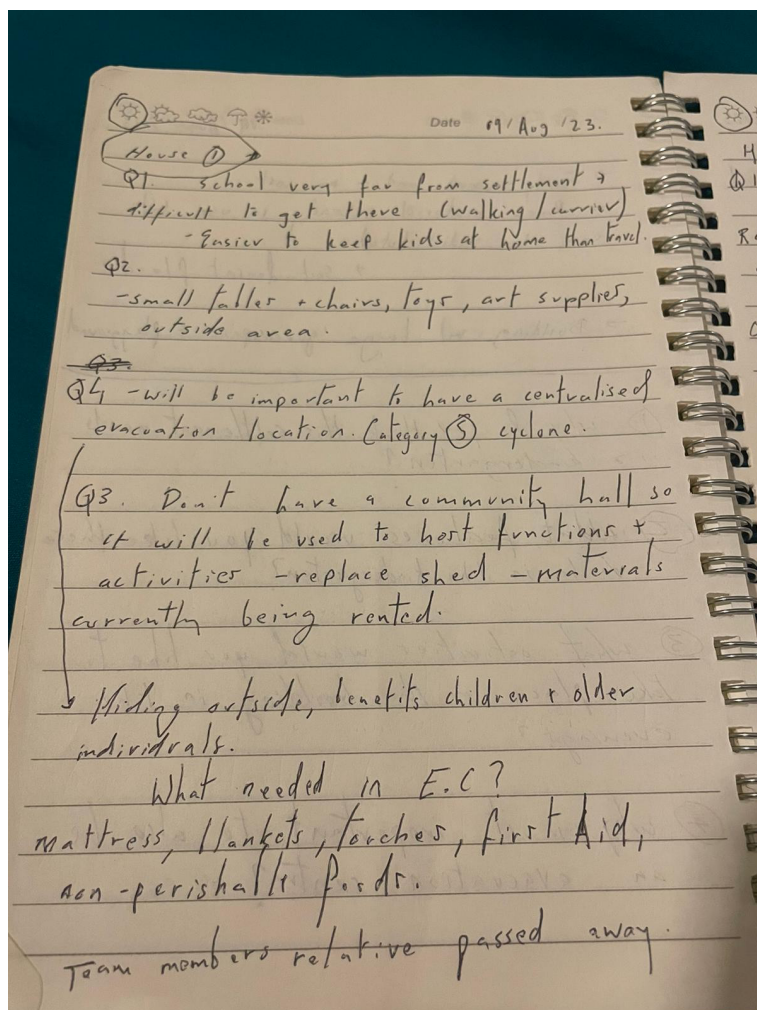 Date 19/Aug/23.
House ①
Q1. School very far from settlement +
difficult to get there (walking/carrier)
- Easier to keep kids at home than travel.
Q2.
- small tables + chairs, toys, art supplies,
outside area.
Q3.
Q4 - will be important to have a centralised
evacuation location. Category ⑤ cyclone.
Q3. Don't have a community hall so
it will be used to host functions +
activities - replace shed - materials
currently being rented.
Hiding outside, benefits children + older
individuals.
What needed in E.C?
Mattress, blankets, torches, first Aid,
non-perishable foods.
Team members relative passed away.
H
Q1
R